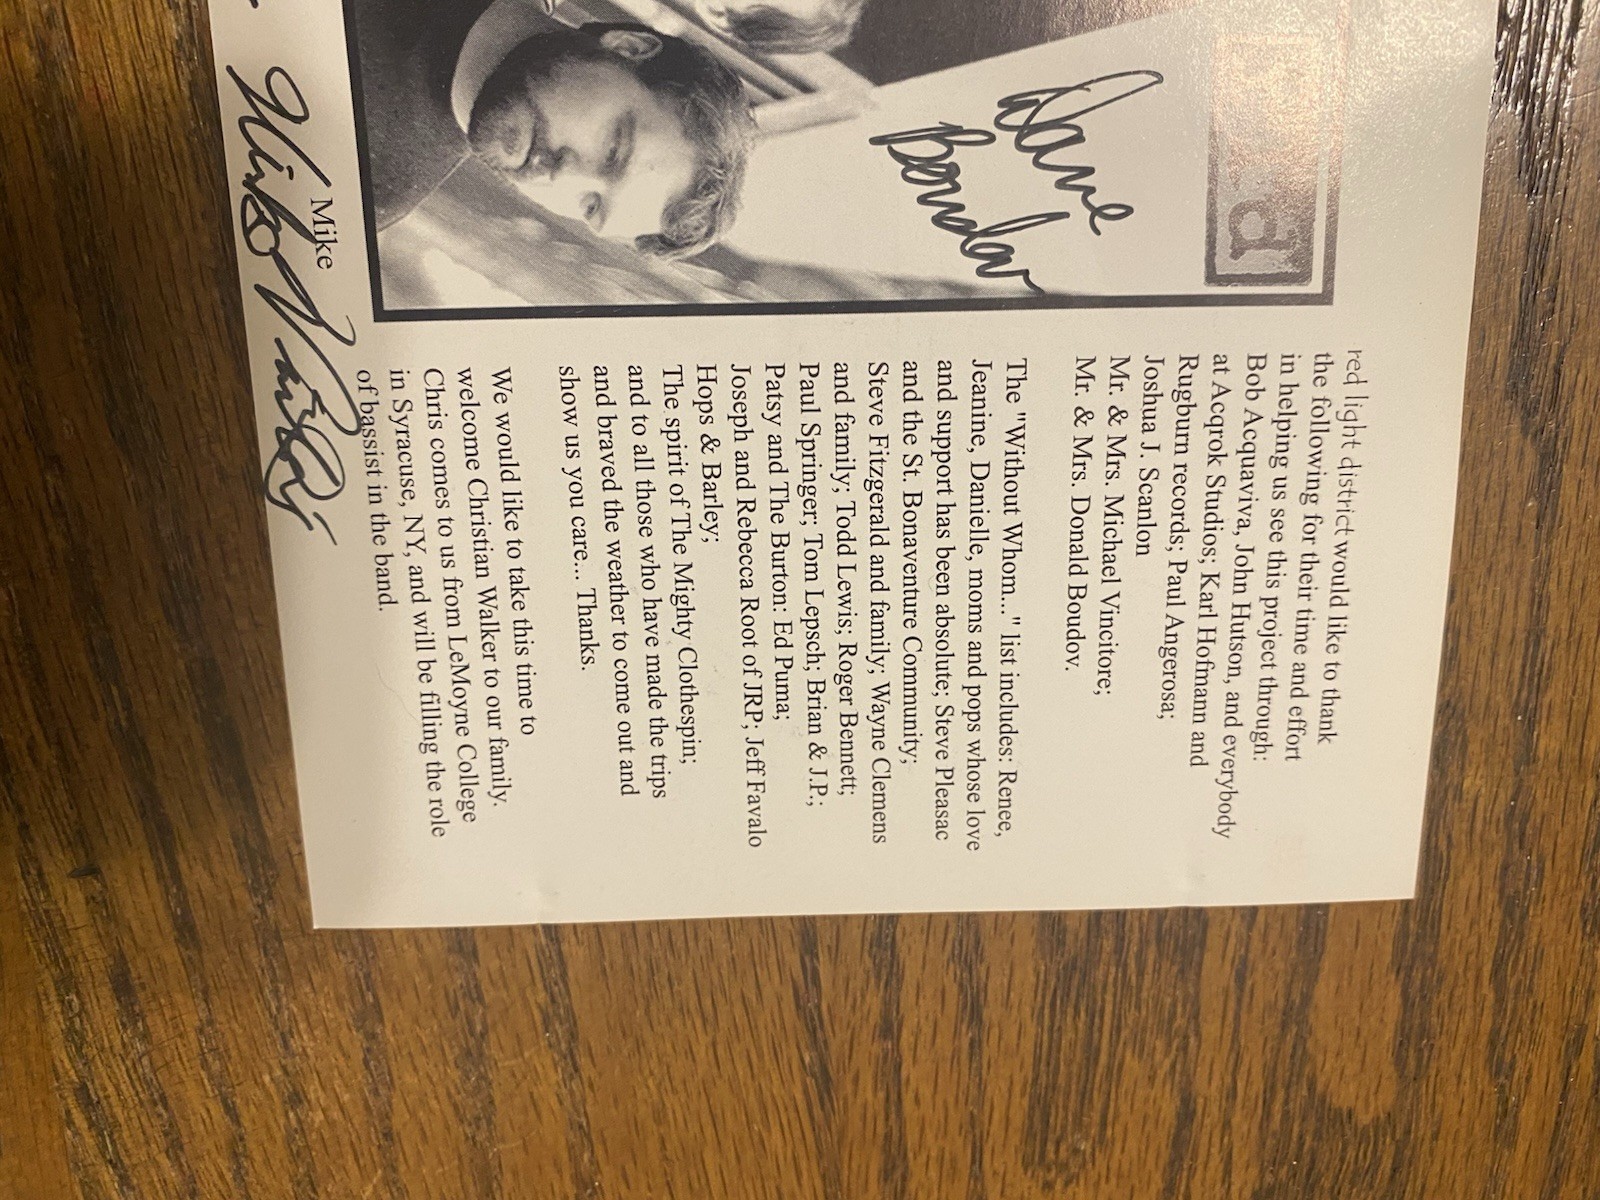 d
Dave
Boudov
Mike
red light district would like to thank
the following for their time and effort
in helping us see this project through:
Bob Acquaviva, John Hutson, and everybody
at Acqrok Studios; Karl Hofmann and
Rugburn records; Paul Angerosa;
Joshua J. Scanlon
Mr. & Mrs. Michael Vincitore;
Mr. & Mrs. Donald Boudov.
The "Without Whom..." list includes: Renee,
Jeanine, Danielle, moms and pops whose love
and support has been absolute; Steve Pleasac
and the St. Bonaventure Community;
Steve Fitzgerald and family; Wayne Clemens
and family; Todd Lewis; Roger Bennett;
Paul Springer; Tom Lepsch; Brian & J.P.;
Patsy and The Burton: Ed Puma;
Joseph and Rebecca Root of JRP; Jeff Favalo
Hops & Barley;
The spirit of The Mighty Clothespin;
and to all those who have made the trips
and braved the weather to come out and
show us you care... Thanks.
We would like to take this time to
welcome Christian Walker to our family.
Chris comes to us from LeMoyne College
in Syracuse, NY, and will be filling the role
of bassist in the band.